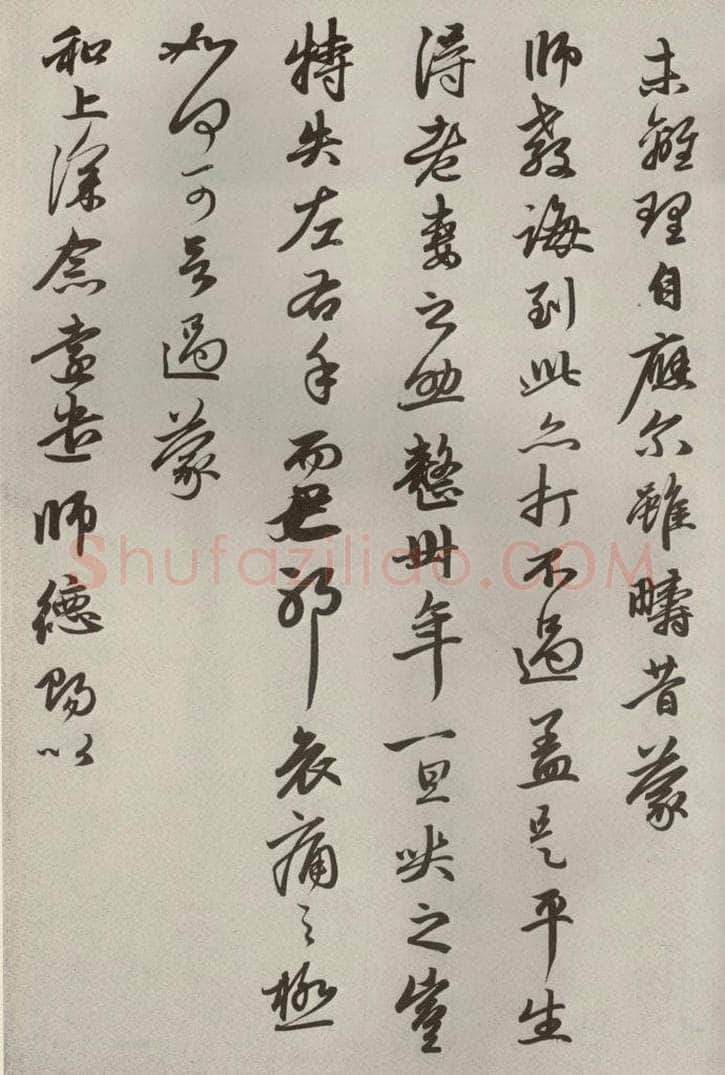 未能離理自應尔雖疇昔蒙
师教誨到此亦打不過盖是平生
得老妻之助整卅年一旦哭之豈
特失左右手而已耶哀痛之極
如何可言過蒙
和上深念遠遣师德賜以
Shufaziliao.COM